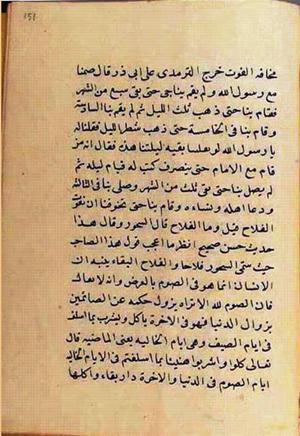 ١٥١
مخافة الفوت خرج الترمذي على ابي ذر قال صمنا
مع رسول الله ولم يقم بنا حتى بقى سبع من الشهر
فقام بنا حتى ذهب ثلث الليل ثم لم يقم بنا السادسة
وقام بنا في الخامسة حتى ذهب شطر الليل فقلنا له
يا رسول الله لو نفلتنا بقيه ليلتنا هذه فقال انه من
قام مع الامام حتى ينصرف كتب له قيام ليلة ثم
لم يصل بنا حتى بقى ثلث من الشهر وصلى بنا في الثالثة
ودعا اهله ونساءه وقام بنا حتى تخوفنا ان نفوت
الفلاح قيل وما الفلاح قال السحور وقال هذا
حديث حسن صحيح انظر ما اعجب قول هذا الصاحب
حيث سمى السحور فلاحا والفلاح البقاء ينبه ان
الانسان انما هو في الصوم بالعرض وانه لا بقاء له
فان الصوم لله الا تراه يزول حكمه عن الصائمين
بزوال الدنيا فهو في الاخرة ياكل ويشرب بما اسلف
في ايام الصيف وهى ايام الخاليه يعنى الماضية قال
تعالى كلوا واشربوا هنيئا بما اسلفتم في الايام الخالية
ايام الصوم في الدنيا والاخرة دار بقاء واكلها